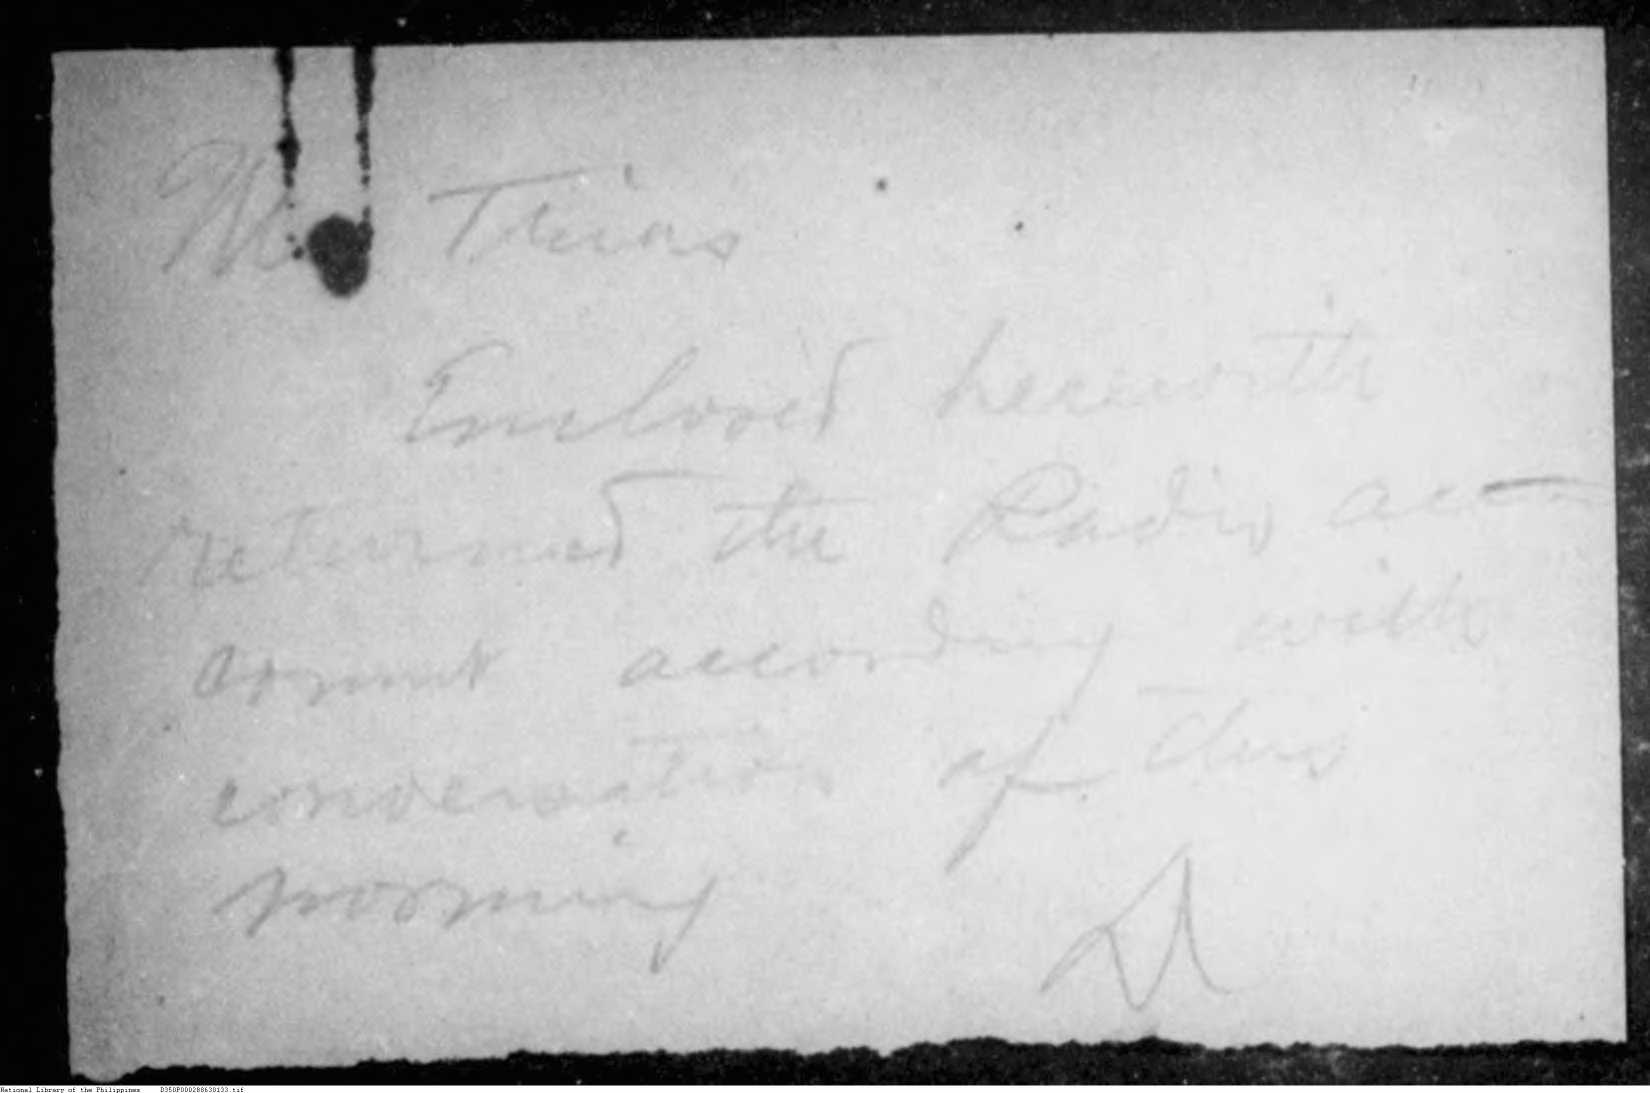 Mr
Enclosed herewith
returned the Radio acc
ount according with
conversation of this
morning
National Library of the Philippines D350P000288630133.tif